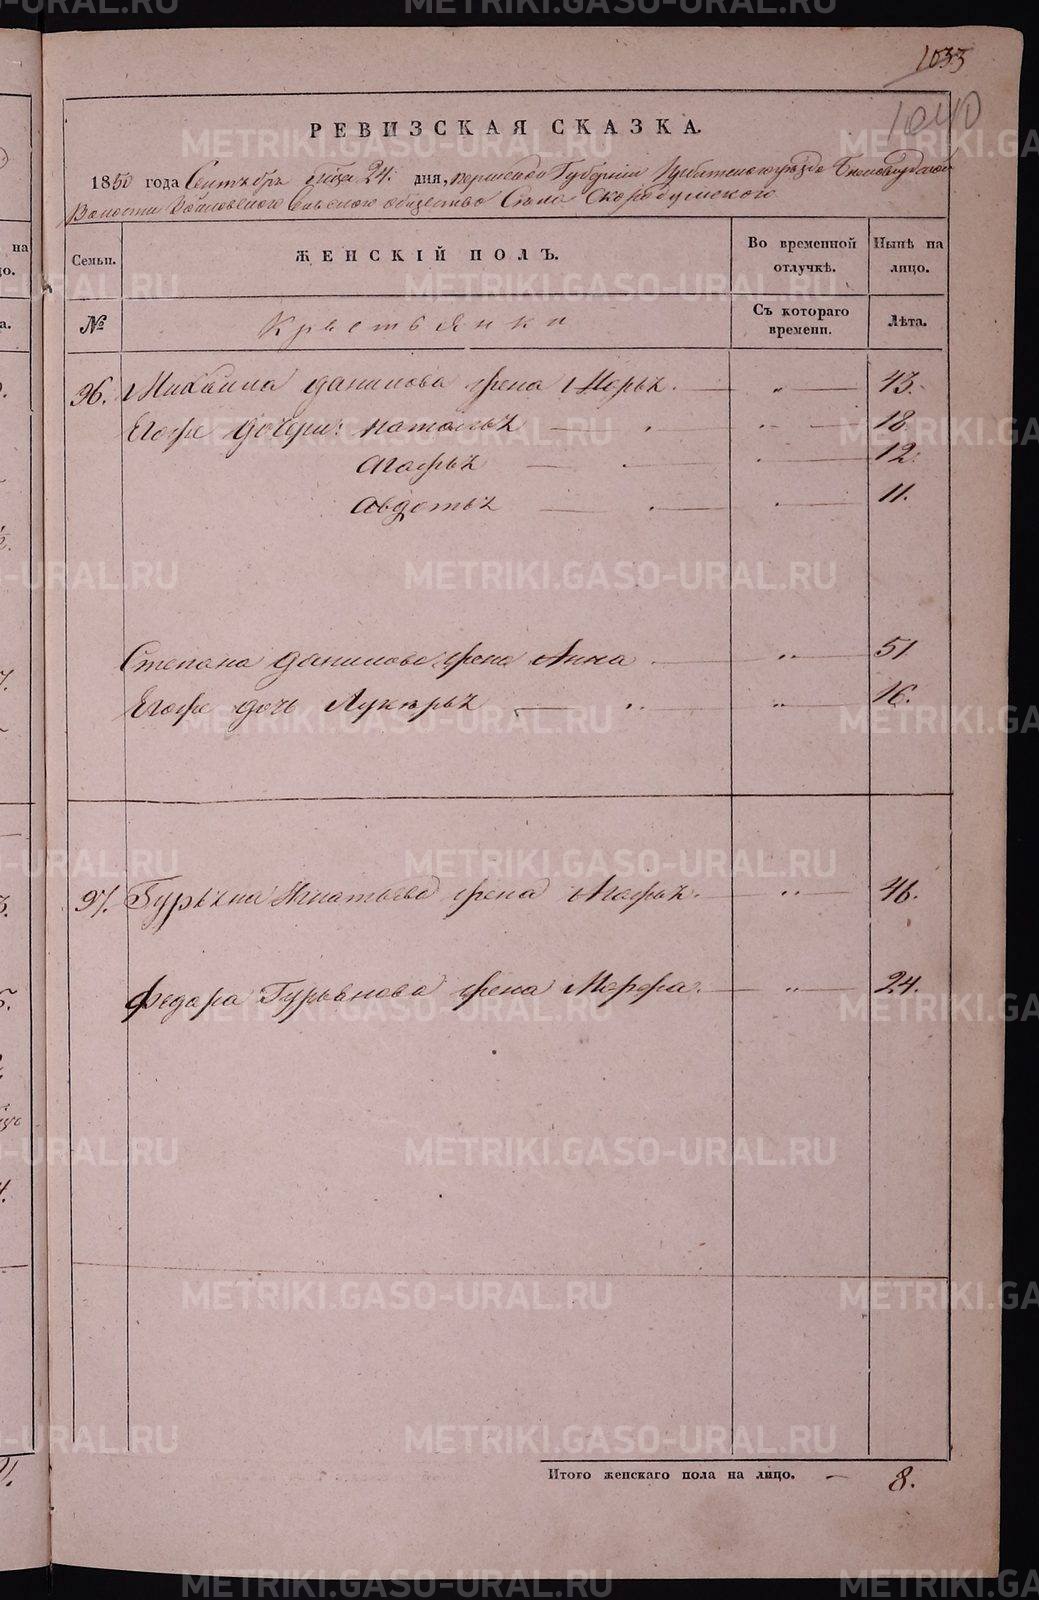 1033
1040
РЕВИЗСКАЯ СКАЗКА.
1850 года Сентября 24. дня, Пермской Губернии Ирбитского уезда
Волости сельского общества Села Скородумского
Семьи. ЖЕНСКІЙ ПОЛЪ. Во временной отлучкѣ. Нынѣ на лицо.
№ Крестьянки Съ котораго времени. Лѣта.
96. Михаила Данилова жена Марья. — „ — 43.
Егоже дочери: Наталья — „ — 18.
Агафья — 12.
Авдотья — 11.
Степана Данилова жена Анна — „ — 51
Егоже дочь Лукерья — „ — 16.
97. Гурьяна Игнатьева жена Агафья. — „ — 46.
Федора Гурьянова жена Марфа. — „ — 24.
Итого женскаго пола на лицо. — 8.
METRIKI.GASO-URAL.RU